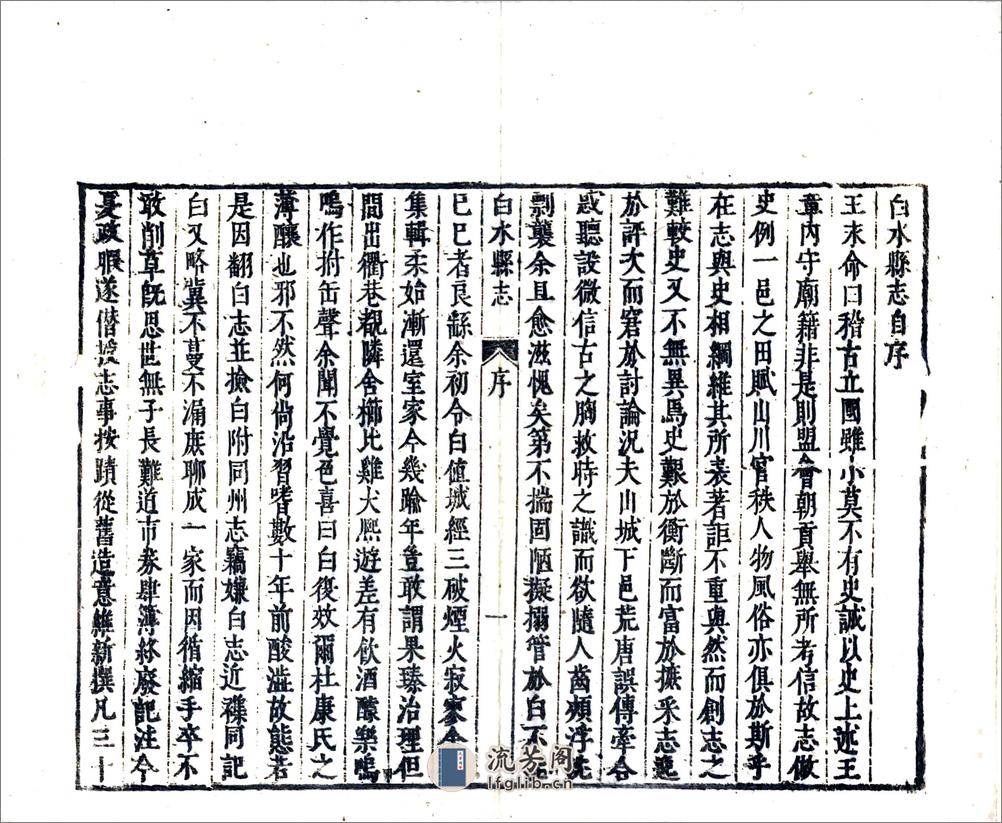 白水縣志自序
王末命曰稽古立國雖小莫不有史誠以史上述王
章內守廟籍非是則盟會朝貢舉無所考信故志倣
史例一邑之田賦山川官秩人物風俗亦俱於斯乎
在志與史相綱維其所表著詎不重與然而創志之
難較史又不無異焉史艱於衡斷而富於摭采志逸
於評次而窘於討論況夫山城下邑荒唐誤傳牽合
惑聽設微信古之胸救時之識而欲隨人齒頰浮沈
剽襲余且愈滋愧矣第不揣固陋擬搦管於白不能
白水縣志 序 一
已已者良繇余初令白值城經三破煙火寂寥余
集輯柔始漸還室家今幾踰年豈敢謂果臻治理但
間出衢巷覩隣舍櫛比雞犬熙遊差有飲酒醵樂嗚
嗚作拊缶聲余聞不覺色喜曰白復效爾杜康氏之
薄釀也邪不然何尙沿習嗜數十年前酸澁故態若
是因翻白志並撿白附同州志竊嫌白志近襍同記
白又略冀不蔓不漏庶聊成一家而因循縮手卒不
敢削草旣思世無子長難道市券肆簿終廢記注今
憂政暇遂僭援志事按蹟從舊造意維新撰凡三十
流芳阁
lfglib.cn